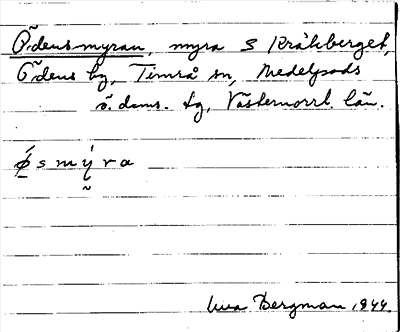 Ödensmyran, myra S Kråkberget,
Ödens by, Timrå sn, Medelpads
ö. doms. tg, Västernorrl. län.
ǿ s m ý r a
Bergman 1944.